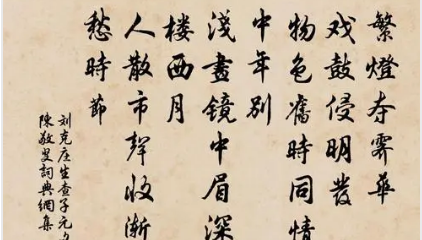 繁燈夺霽華
戏鼓侵明發
物色舊時同情
中年別
淺畫镜中眉深
楼西月
人散市聲收渐
愁時節
刘克庄生查子元夕
陳敬叟詞典網集